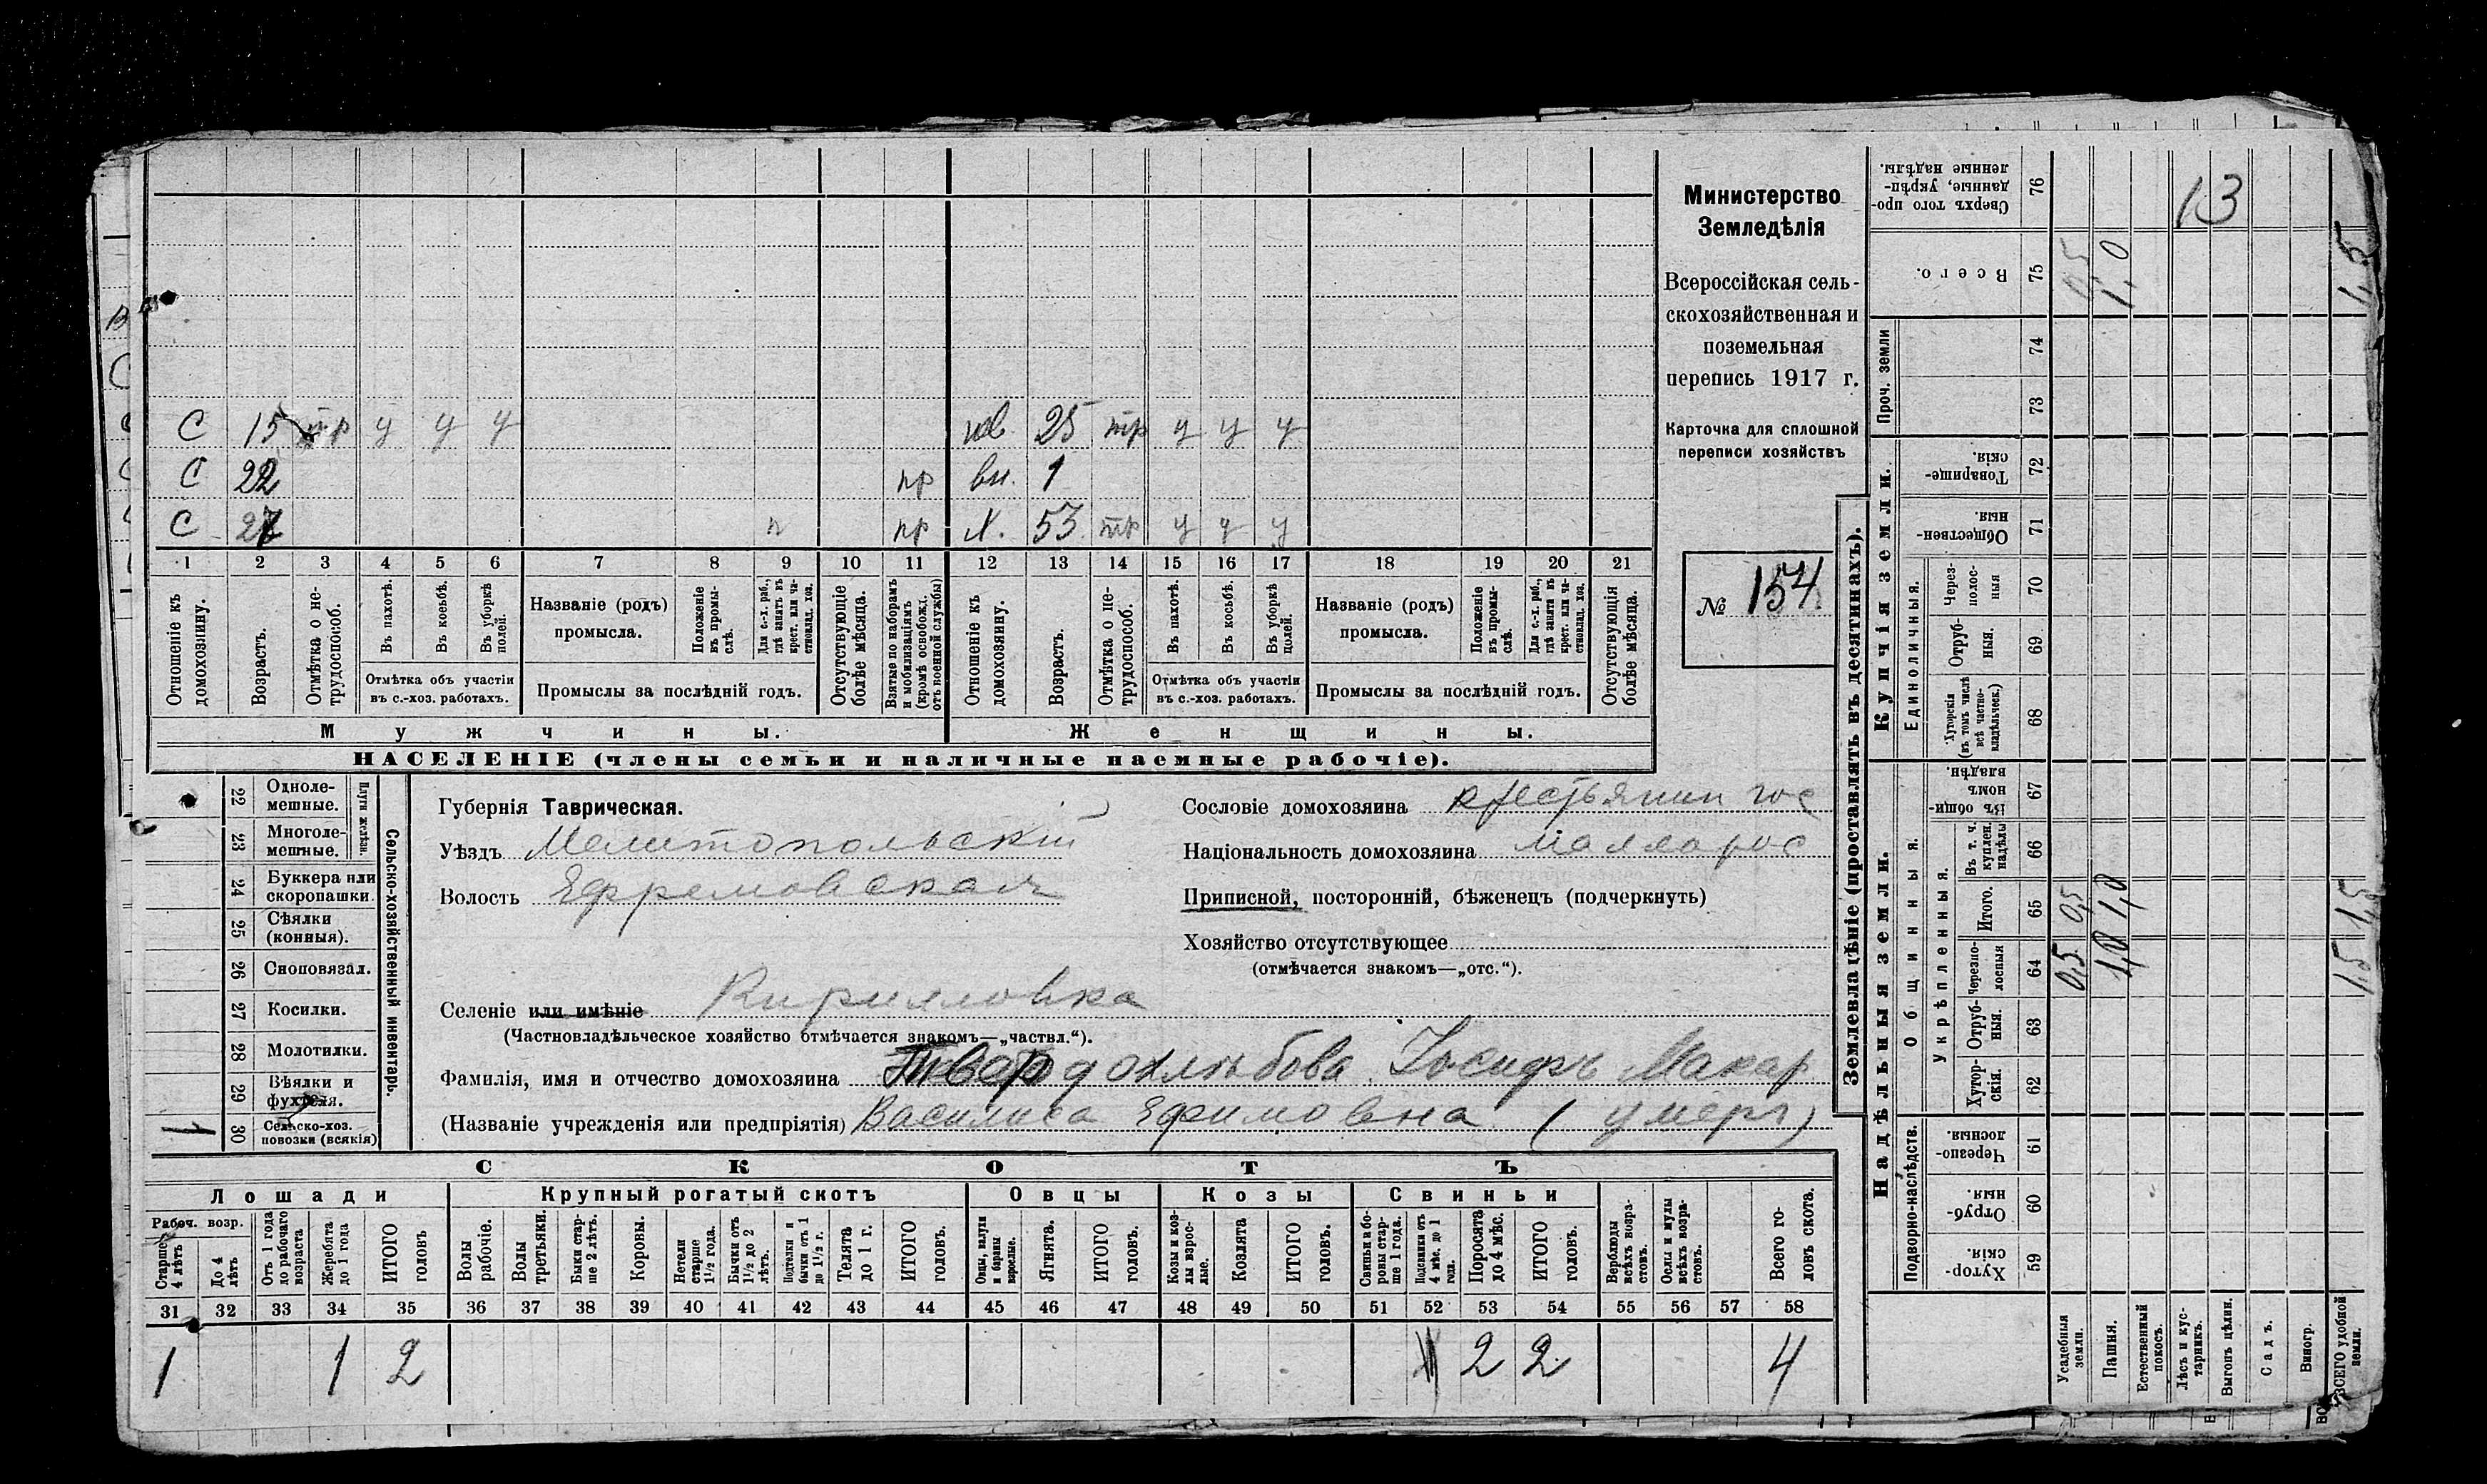 С 15 тр у у у нев. 25 тр у у у
С 22 пр вн. 1
С п пр х. 53 тр у у у
1 2 3 4 5 6 7 8 9 10 11 12 13 14 15 16 17 18 19 20 21
Отношеніе къ домохозяину.
Возрастъ.
Отмѣтка о не-трудоспособ.
Въ пахотѣ.
Въ косьбѣ.
Въ уборкѣ полей.
Отмѣтка объ участіи
въ с.-хоз. работахъ.
Названіе (родъ)
промысла.
Положеніе въ промы-слѣ.
Для с.-х. раб., гдѣ занятъ въ крест. или ча-стновлад. хоз.
Промыслы за послѣдній годъ.
Отсутствующіе болѣе мѣсяца.
Взятые по наборамъ и мобилизаціямъ (кромѣ освобожд. отъ военной службы)
Отношеніе къ домохозяину.
Возрастъ.
Отмѣтка о не-трудоспособ.
Въ пахотѣ.
Въ косьбѣ.
Въ уборкѣ полей.
Отмѣтка объ участіи
въ с.-хоз. работахъ.
Названіе (родъ)
промысла.
Положеніе въ промы-слѣ.
Для с.-х. раб., гдѣ занята въ крест. или ча-стновлад. хоз.
Промыслы за послѣдній годъ.
Отсутствующія болѣе мѣсяца.
Мужчины. Женщины.
НАСЕЛЕНІЕ (члены семьи и наличные наемные рабочіе).
Министерство
Земледѣлія
Всероссійская сель-
скохозяйственная и
поземельная
перепись 1917 г.
Карточка для сплошной
переписи хозяйствъ
№ 154
22 Одноле-мешные.
23 Многоле-мешные.
Плуги желѣзн.
24 Буккера или скоропашки.
25 Сѣялки (конныя).
26 Сноповязал.
27 Косилки.
28 Молотилки.
29 Вѣялки и фухтеля.
1 30 Сельско-хоз. повозки (всякія)
Сельско-хозяйственный инвентарь.
Губернія Таврическая.
Уѣздъ Мелитопольскій
Волость Ефремовская
Селеніе или имѣніе Кирилловка
(Частновладѣльческое хозяйство отмѣчается знакомъ—„частвл.“).
Фамилія, имя и отчество домохозяина Твердохлѣбова Іосифъ Макар
(Названіе учрежденія или предпріятія) Василиса Ефимовна (умеръ)
Сословіе домохозяина крестьянин гос
Національность домохозяина маллорос
Приписной, посторонній, бѣженецъ (подчеркнуть)
Хозяйство отсутствующее
(отмѣчается знакомъ—„отс.“).
СКОТЪ
Лошади Крупный рогатый скотъ Овцы Козы Свиньи
Рабоч. возр.
Старше 4 лѣтъ
До 4 лѣтъ
Отъ 1 года до рабочаго возраста
Жеребята до 1 года
ИТОГО головъ
Волы рабочіе.
Волы третьяки.
Быки стар-ше 2 лѣтъ.
Коровы.
Нетели старше 1½ года.
Бычки отъ 1½ до 2 лѣтъ.
Подтелки и бычки отъ 1 до 1½ г.
Телята до 1 г.
ИТОГО головъ.
Овцы, валухи и бараны взрослые.
Ягнята.
ИТОГО головъ.
Козы и коз-лы взрос-лые.
Козлята
ИТОГО головъ.
Свиньи и бо-ровы стар-ше 1 года.
Подсвинки отъ 4 мѣс. до 1 года.
Поросята до 4 мѣс.
ИТОГО головъ.
Верблюды всѣхъ возра-стовъ.
Ослы и мулы всѣхъ возра-стовъ.
Всего го-ловъ скота.
31 32 33 34 35 36 37 38 39 40 41 42 43 44 45 46 47 48 49 50 51 52 53 54 55 56 57 58
1 1 2 2 2 4
Землевладѣніе (проставлять въ десятинахъ).
Сверхъ того про-данные, укрѣп-ленные надѣлы. 76 13
Всего. 75 0,5 1,0 1,5
Проч. земли
74
73
Купчія земли.
Товарище-скія. 72
Обществен-ныя. 71
Единоличныя.
Через-полос-ныя 70
Отруб-ныя. 69
Хуторскія (въ томъ числѣ всѣ частно-владѣльческ.) 68
Надѣльныя земли.
Общинныя.
Въ общи-номъ владѣн. 67
Укрѣпленныя.
Въ т. ч. куплен. надѣлы 66
Итого. 65 0,5 1,0 1,5
Черезпо-лосныя 64 0,5 1,0 1,5
Отруб-ныя. 63
Хутор-скія. 62
Подворно-наслѣдств.
Черезпо-лосныя. 61
Отруб-ныя. 60
Хутор-скія. 59
Усадебныя земли.
Пашня.
Естественный покосъ.
Лѣсъ и кус-тарникъ.
Выгонъ цѣлин.
Садъ.
Виногр.
ВСЕГО удобной земли.